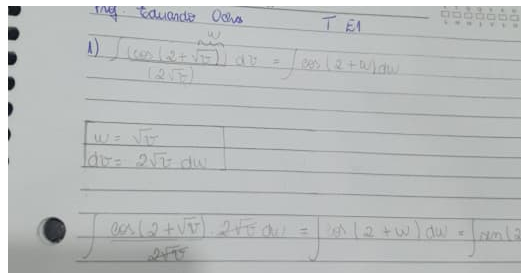 Prof. Eduardo Ochs T E1
w
1) ∫ (cos(2+√v)) / (2√v) dv = ∫ cos(2+w) dw
w = √v
dv = 2√v dw
∫ cos(2+√v) / 2√v · 2√v dw = ∫ cos(2+w) dw = ∫ sen(2